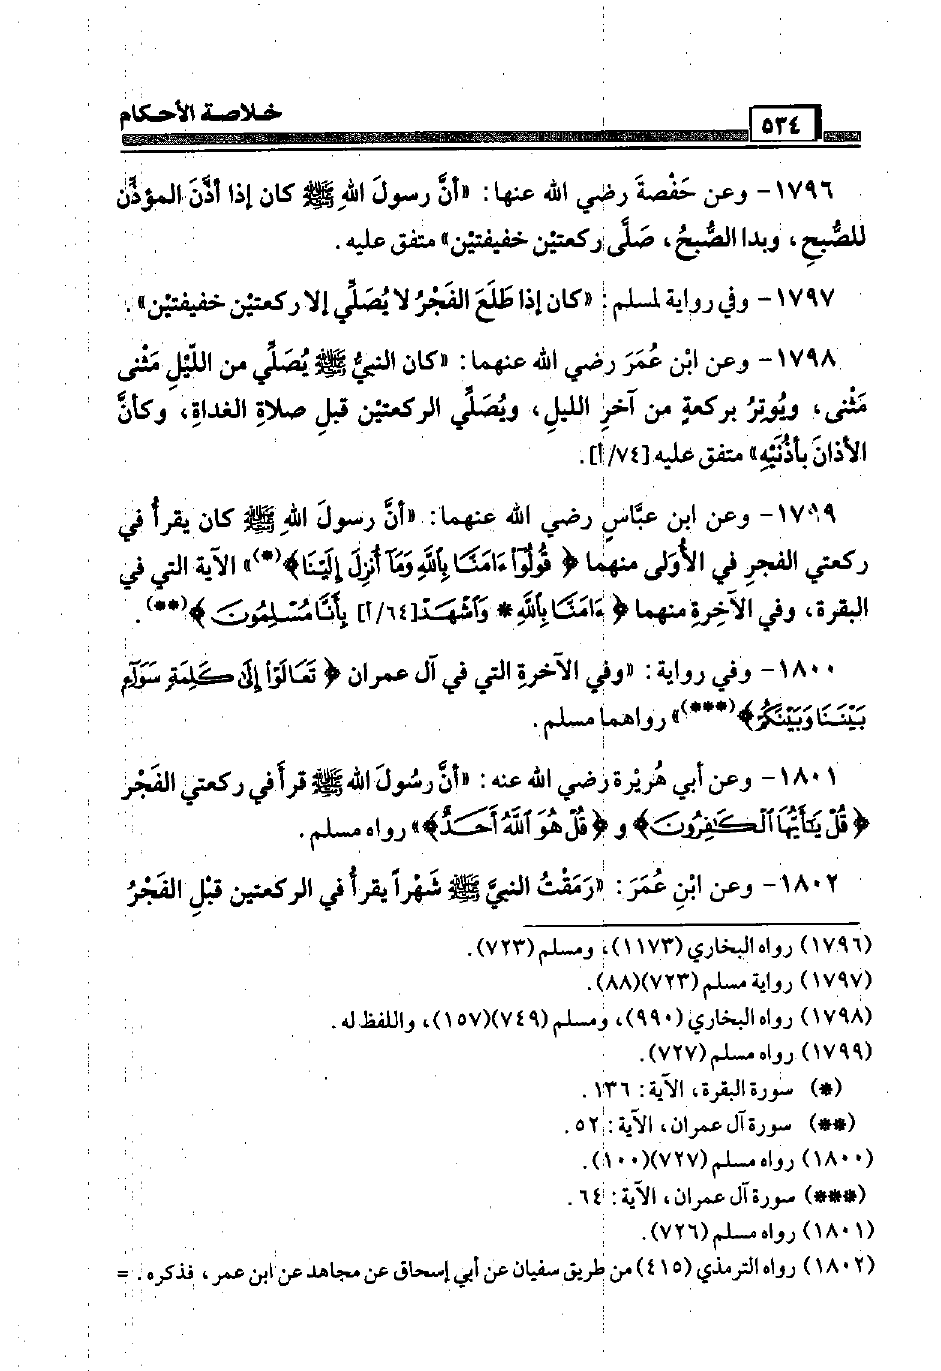 خلاصة الأحكام
٥٣٤
١٧٩٦- وعن حَفْصةَ رضي الله عنها: «أنَّ رسولَ اللهِ ﷺ كان إذا أذَّنَ المؤذِّن
للصُّبحِ، وبدا الصُّبحُ، صَلَّى ركعتيْن خفيفتيْن» متفق عليه.
١٧٩٧- وفي رواية لمسلم: «كان إذا طَلَعَ الفَجْرُ لا يُصَلِّي إلا ركعتيْن خفيفتيْن».
١٧٩٨- وعن ابْن عُمَرَ رضي الله عنهما: «كان النبيُّ ﷺ يُصَلِّي من اللّيْلِ مَثْنى
مَثْنى، ويُوتِرُ بركعةٍ من آخرِ الليلِ، ويُصَلِّي الركعتيْن قبلِ صلاةِ الغداةِ، وكأنَّ
الأذانَ بأذُنَيْهِ» متفق عليه[٧٤/أ].
١٧٩٩- وعن ابن عبَّاسٍ رضي الله عنهما: «أنَّ رسولَ اللهِ ﷺ كان يقرأُ في
ركعتي الفجرِ في الأُولَى منهما ﴿ قُولُوٓا۟ ءَامَنَّا بِٱللَّهِ وَمَآ أُنزِلَ إِلَيْنَا﴾(*)» الآية التي في
البقرة، وفي الآخِرةِ منهما ﴿ ءَامَنَّا بِٱللَّهِ * وَٱشْهَدْ[٦٤/أ] بِأَنَّا مُسْلِمُونَ ﴾(**).
١٨٠٠- وفي رواية: «وفي الآخرةِ التي في آل عمران ﴿ تَعَالَوْا۟ إِلَىٰ كَلِمَةٍ سَوَآءٍ
بَيْنَنَا وَبَيْنَكُمْ﴾(***)» رواهما مسلم.
١٨٠١- وعن أبي هُريْرة رضي الله عنه: «أنَّ رسُولَ الله ﷺ قرأَ في ركعتي الفَجْر
﴿ قُلْ يَٰٓأَيُّهَا ٱلْكَٰفِرُونَ﴾ و ﴿ قُلْ هُوَ ٱللَّهُ أَحَدٌ﴾» رواه مسلم.
١٨٠٢- وعن ابْنِ عُمَرَ: «رَمَقْتُ النبيَّ ﷺ شَهْراً يقرأُ في الركعتين قبْلِ الفَجْرُ
(١٧٩٦) رواه البخاري (١١٧٣)، ومسلم (٧٢٣).
(١٧٩٧) رواية مسلم (٧٢٣)(٨٨).
(١٧٩٨) رواه البخاري (٩٩٠)، ومسلم (٧٤٩)(١٥٧)، واللفظ له.
(١٧٩٩) رواه مسلم (٧٢٧).
(*) سورة البقرة، الآية: ١٣٦.
(**) سورة آل عمران، الآية: ٥٢.
(١٨٠٠) رواه مسلم (٧٢٧)(١٠٠).
(***) سورة آل عمران، الآية: ٦٤.
(١٨٠١) رواه مسلم (٧٢٦).
(١٨٠٢) رواه الترمذي (٤١٥) من طريق سفيان عن أبي إسحاق عن مجاهد عن ابن عمر، فذكره. =